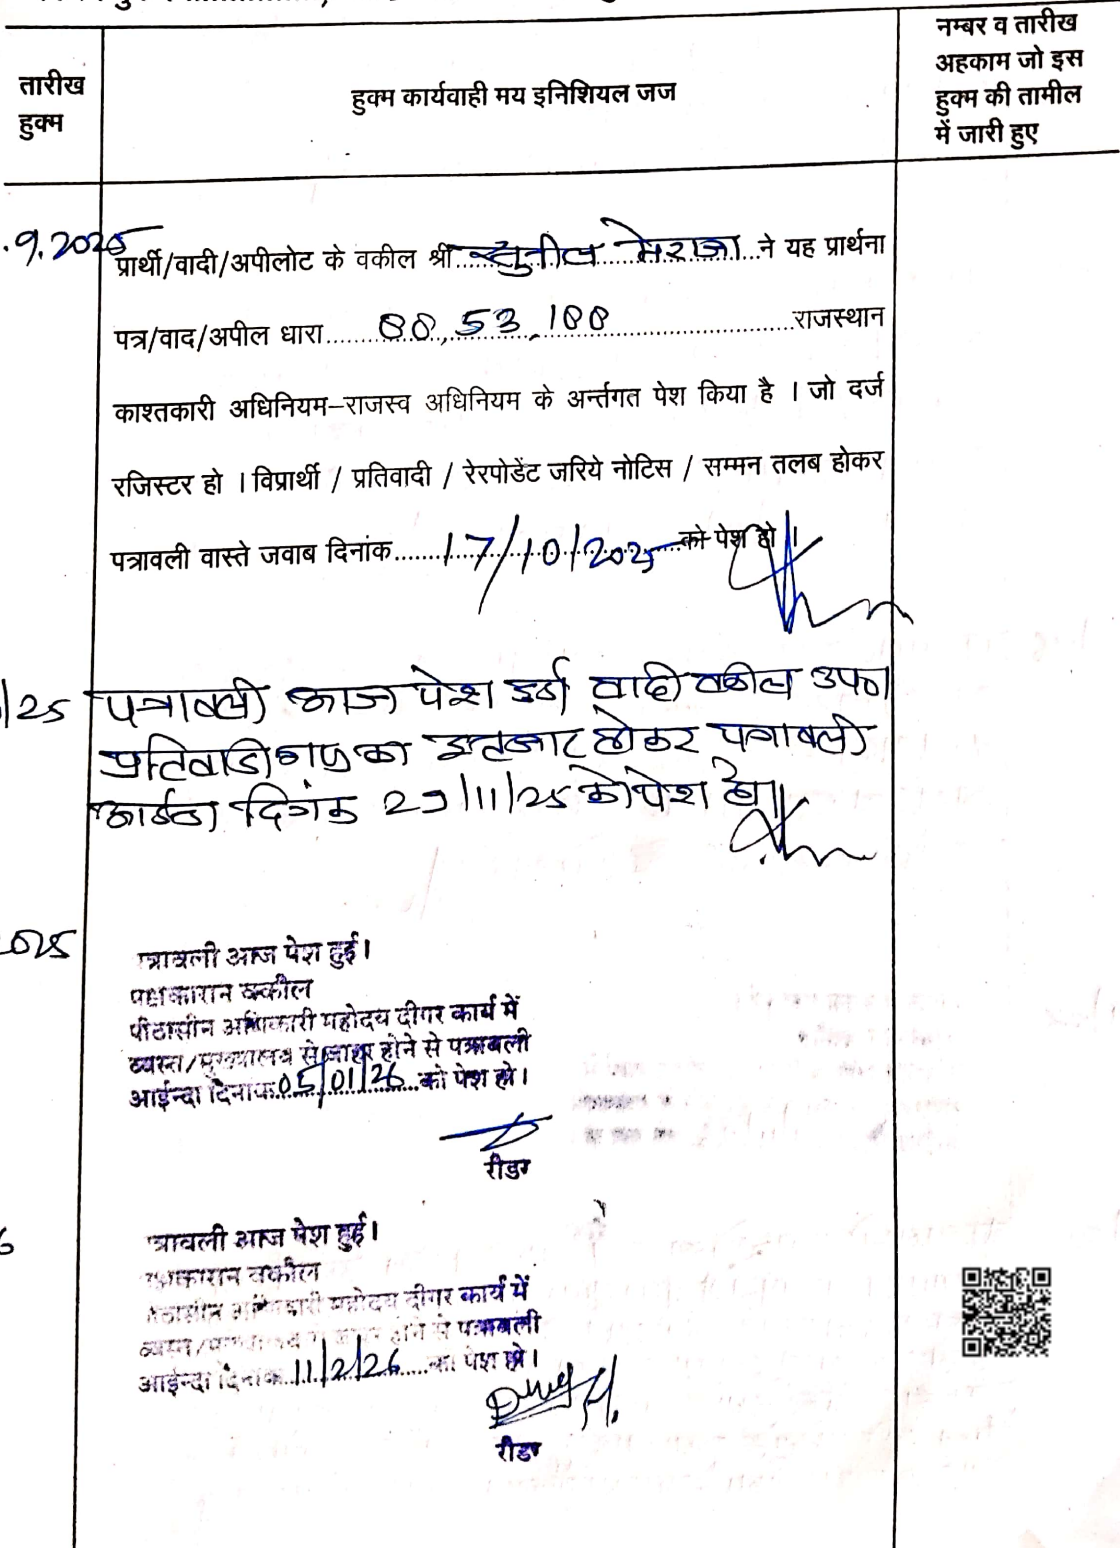 तारीख
हुक्म
हुक्म कार्यवाही मय इनिशियल जज
नम्बर व तारीख
अहकाम जो इस
हुक्म की तामील
में जारी हुए
.9.2025
प्रार्थी/वादी/अपीलोट के वकील श्री सुनील मेराजा ने यह प्रार्थना
पत्र/वाद/अपील धारा 88, 53, 188 राजस्थान
काश्तकारी अधिनियम–राजस्व अधिनियम के अर्न्तगत पेश किया है । जो दर्ज
रजिस्टर हो । विप्रार्थी / प्रतिवादी / रेरपोडेंट जरिये नोटिस / सम्मन तलब होकर
पत्रावली वास्ते जवाब दिनांक 17/10/2025 को पेश हो ।
/25 पत्रावली आज पेश हुई वादी वकील उप०
प्रतिवादीगण का इन्तजार होकर पत्रावली
आईन्दा दिनांक /11/25 को पेश हो।
2025
पत्रावली आज पेश हुई।
पक्षकारान वकील
पीठासीन अधिकारी महोदय दीगर कार्य में
व्यस्त/मुख्यालय से बाहर होने से पत्रावली
आईन्दा दिनांक 05/01/26 को पेश हो।
रीडर
6
पत्रावली आज पेश हुई।
पक्षकारान वकील
पीठासीन अधिकारी महोदय दीगर कार्य में
व्यस्त/ होने से पत्रावली
आईन्दा दिनांक 11/2/26 को पेश हो।
रीडर